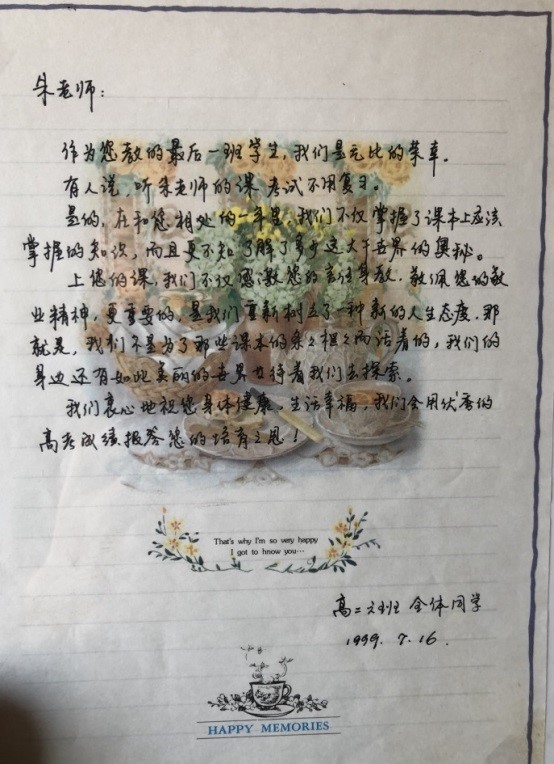 朱老师:
作为您教的最后一班学生,我们是无比的荣幸。
有人说,听朱老师的课考试不用复习。
是的,在和您相处的一年里,我们不仅掌握了课本上应该
掌握的知识,而且更不知了解了多少这大千世界的奥秘。
上您的课,我们不仅感激您的言传身教,敬佩您的敬
业精神,更重要的,是我们重新树立了一种新的人生态度,那
就是,我们不是为了那些课本的条々框々而活着的,我们的
身边还有如此美丽的世界也待着我们去探索。
我们衷心地祝您身体健康,生活幸福,我们会用优秀的
高考成绩报答您的培育之恩!
That's why I'm so very happy
I got to hnow you…
高二六班 全体同学
1999. 7. 16.
HAPPY MEMORIES